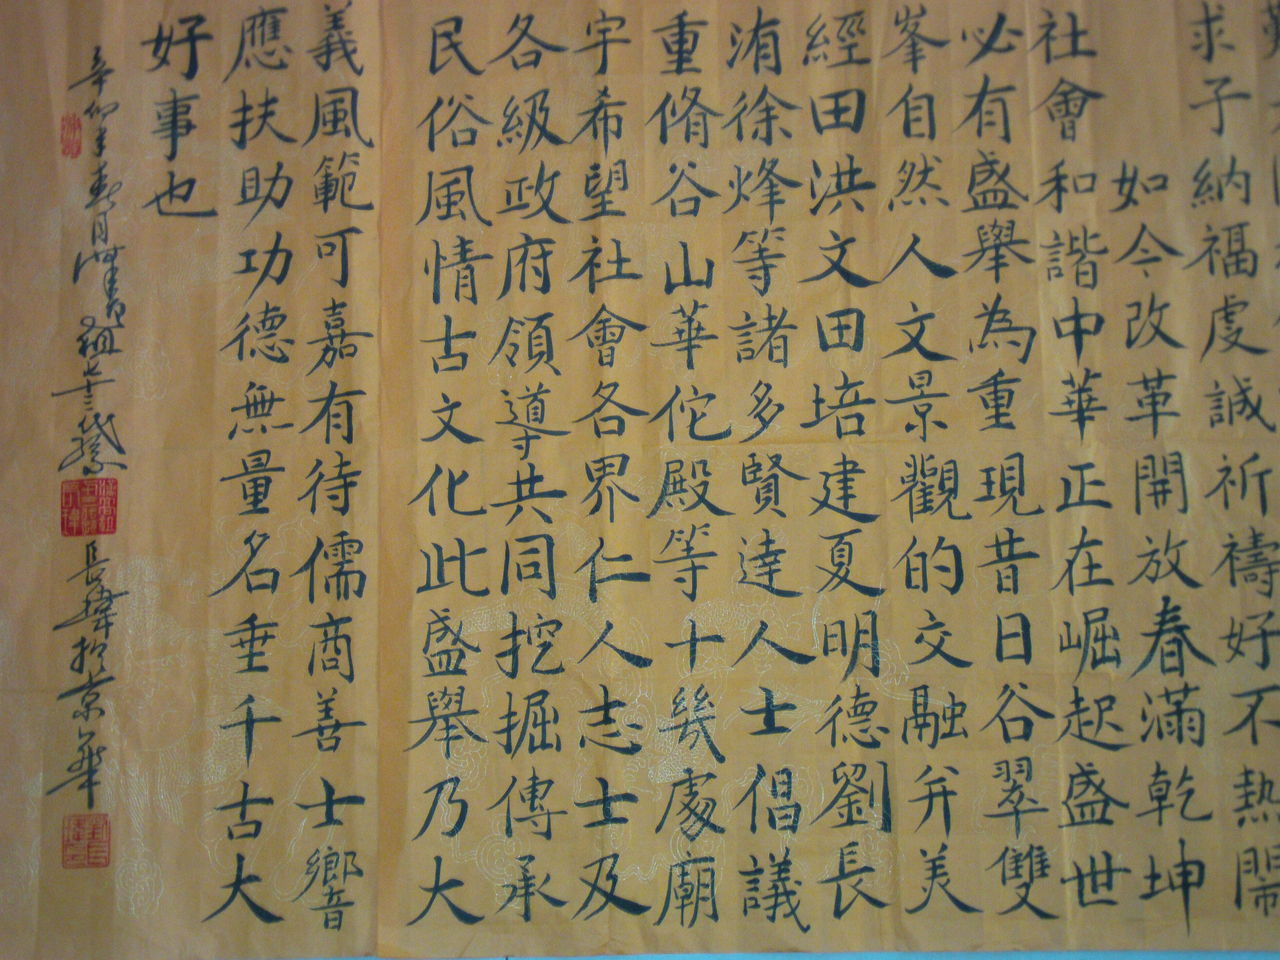 求子納福虔誠祈禱好不熱鬧
如今改革開放春滿乾坤
社會和諧中華正在崛起盛世
必有盛舉為重現昔日谷翠雙
峯自然人文景觀的交融并美
經田洪文田培建夏明德劉長
洧徐烽等諸多賢達人士倡議
重脩谷山華佗殿等十幾處廟
宇希望社會各界仁人志士及
各級政府領導共同挖掘傳承
民俗風情古文化此盛舉乃大
義風範可嘉有待儒商善士響
應扶助功德無量名垂千古大
好事也
辛卯年春月漢
祖七十三代孫
長緯於京華